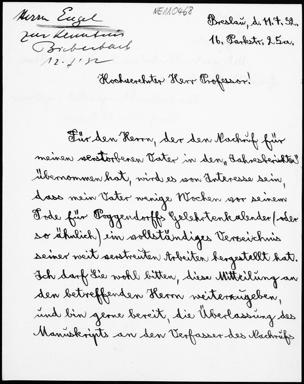 Herrn Engel
zur Kenntnis
Bieberbach
12.7.32
NE110468
Breslau, d. 11.7.32.
16, Parkstr. 25a.
Hochverehrter Herr Professor!
Für den Herrn, der den Nachruf für
meinen verstorbenen Vater in den „Jahresberichten“
übernommen hat, wird es von Interesse sein,
dass mein Vater wenige Wochen vor seinem
Tode für Poggendorffs Gelehrtenkalender (oder
so ähnlich) ein vollständiges Verzeichnis
seiner weit verstreuten Arbeiten hergestellt hat.
Ich darf Sie wohl bitten, diese Mitteilung an
den betreffenden Herrn weiterzugeben,
und bin gerne bereit, die Überlassung des
Manuskripts an den Verfasser des Nachrufs